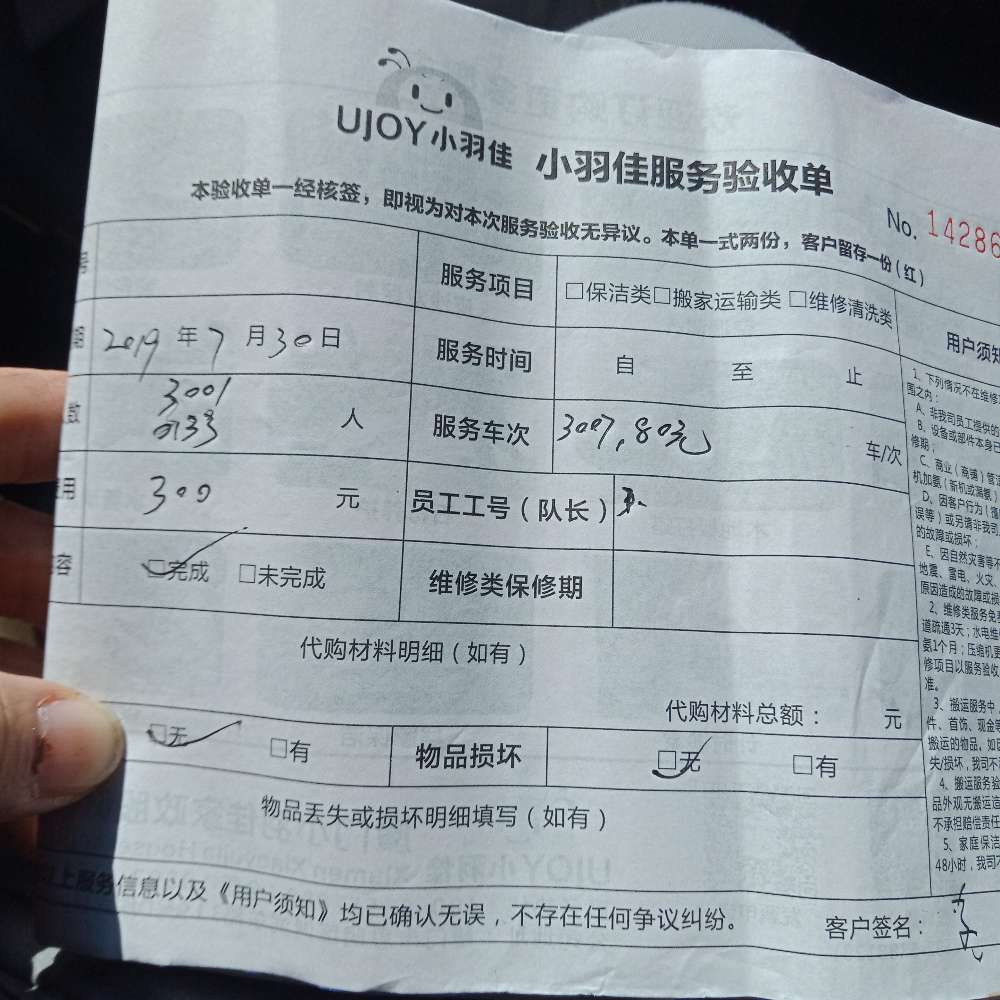 UJOY小羽佳 小羽佳服务验收单
本验收单一经核签，即视为对本次服务验收无异议。本单一式两份，客户留存一份（红）
No. 14286
号 服务项目 □保洁类□搬家运输类 □维修清洗类
期 2019 年 7 月 30 日 服务时间 自 至 止
数 3001 人 服务车次 3007,80元 车/次
用 300 元 员工工号（队长）
容 □完成 □未完成 维修类保修期
代购材料明细（如有）
代购材料总额： 元
□无 □有 物品损坏 □无 □有
物品丢失或损坏明细填写（如有）
上服务信息以及《用户须知》均已确认无误，不存在任何争议纠纷。
客户签名：
用户须知
1、下列情况不在维修
围之内：
A、非我司员工提供的
B、设备或部件本身已
修期；
C、商业（商铺）管道
机加氨（新机或漏氨）
D、因客户行为（擅
误等）或另请非我司
的故障或损坏；
E、因自然灾害等不
地震、雷电、火灾、
原因造成的故障或损
2、维修类服务免费
道疏通3天；水电维
氨1个月；压缩机更
修项目以服务验收
准。
3、搬运服务中，
件、首饰、现金等
搬运的物品，如因
失/损坏，我司不
4、搬运服务验
品外观无搬运造
不承担赔偿责任
5、家庭保洁
48小时，我司不